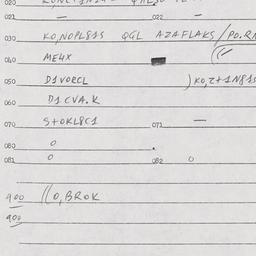 020
021 — 022 —
030 KO,NOPL81S QGL AZAFLAKS/PO.RN
040 ME4X
050 D1VORCL )KO,Z+1N81S
060 D1CVA.K
070 S+OKL8C1 071 —
080 0
081 0 082 0
900 ((0,BROK
900